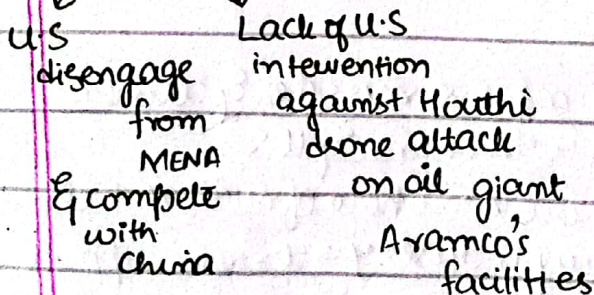 U.S
disengage
from
MENA
& compete
with
China
Lack of U.S
intervention
against Houthi
drone attack
on oil giant
Aramco's
facilities